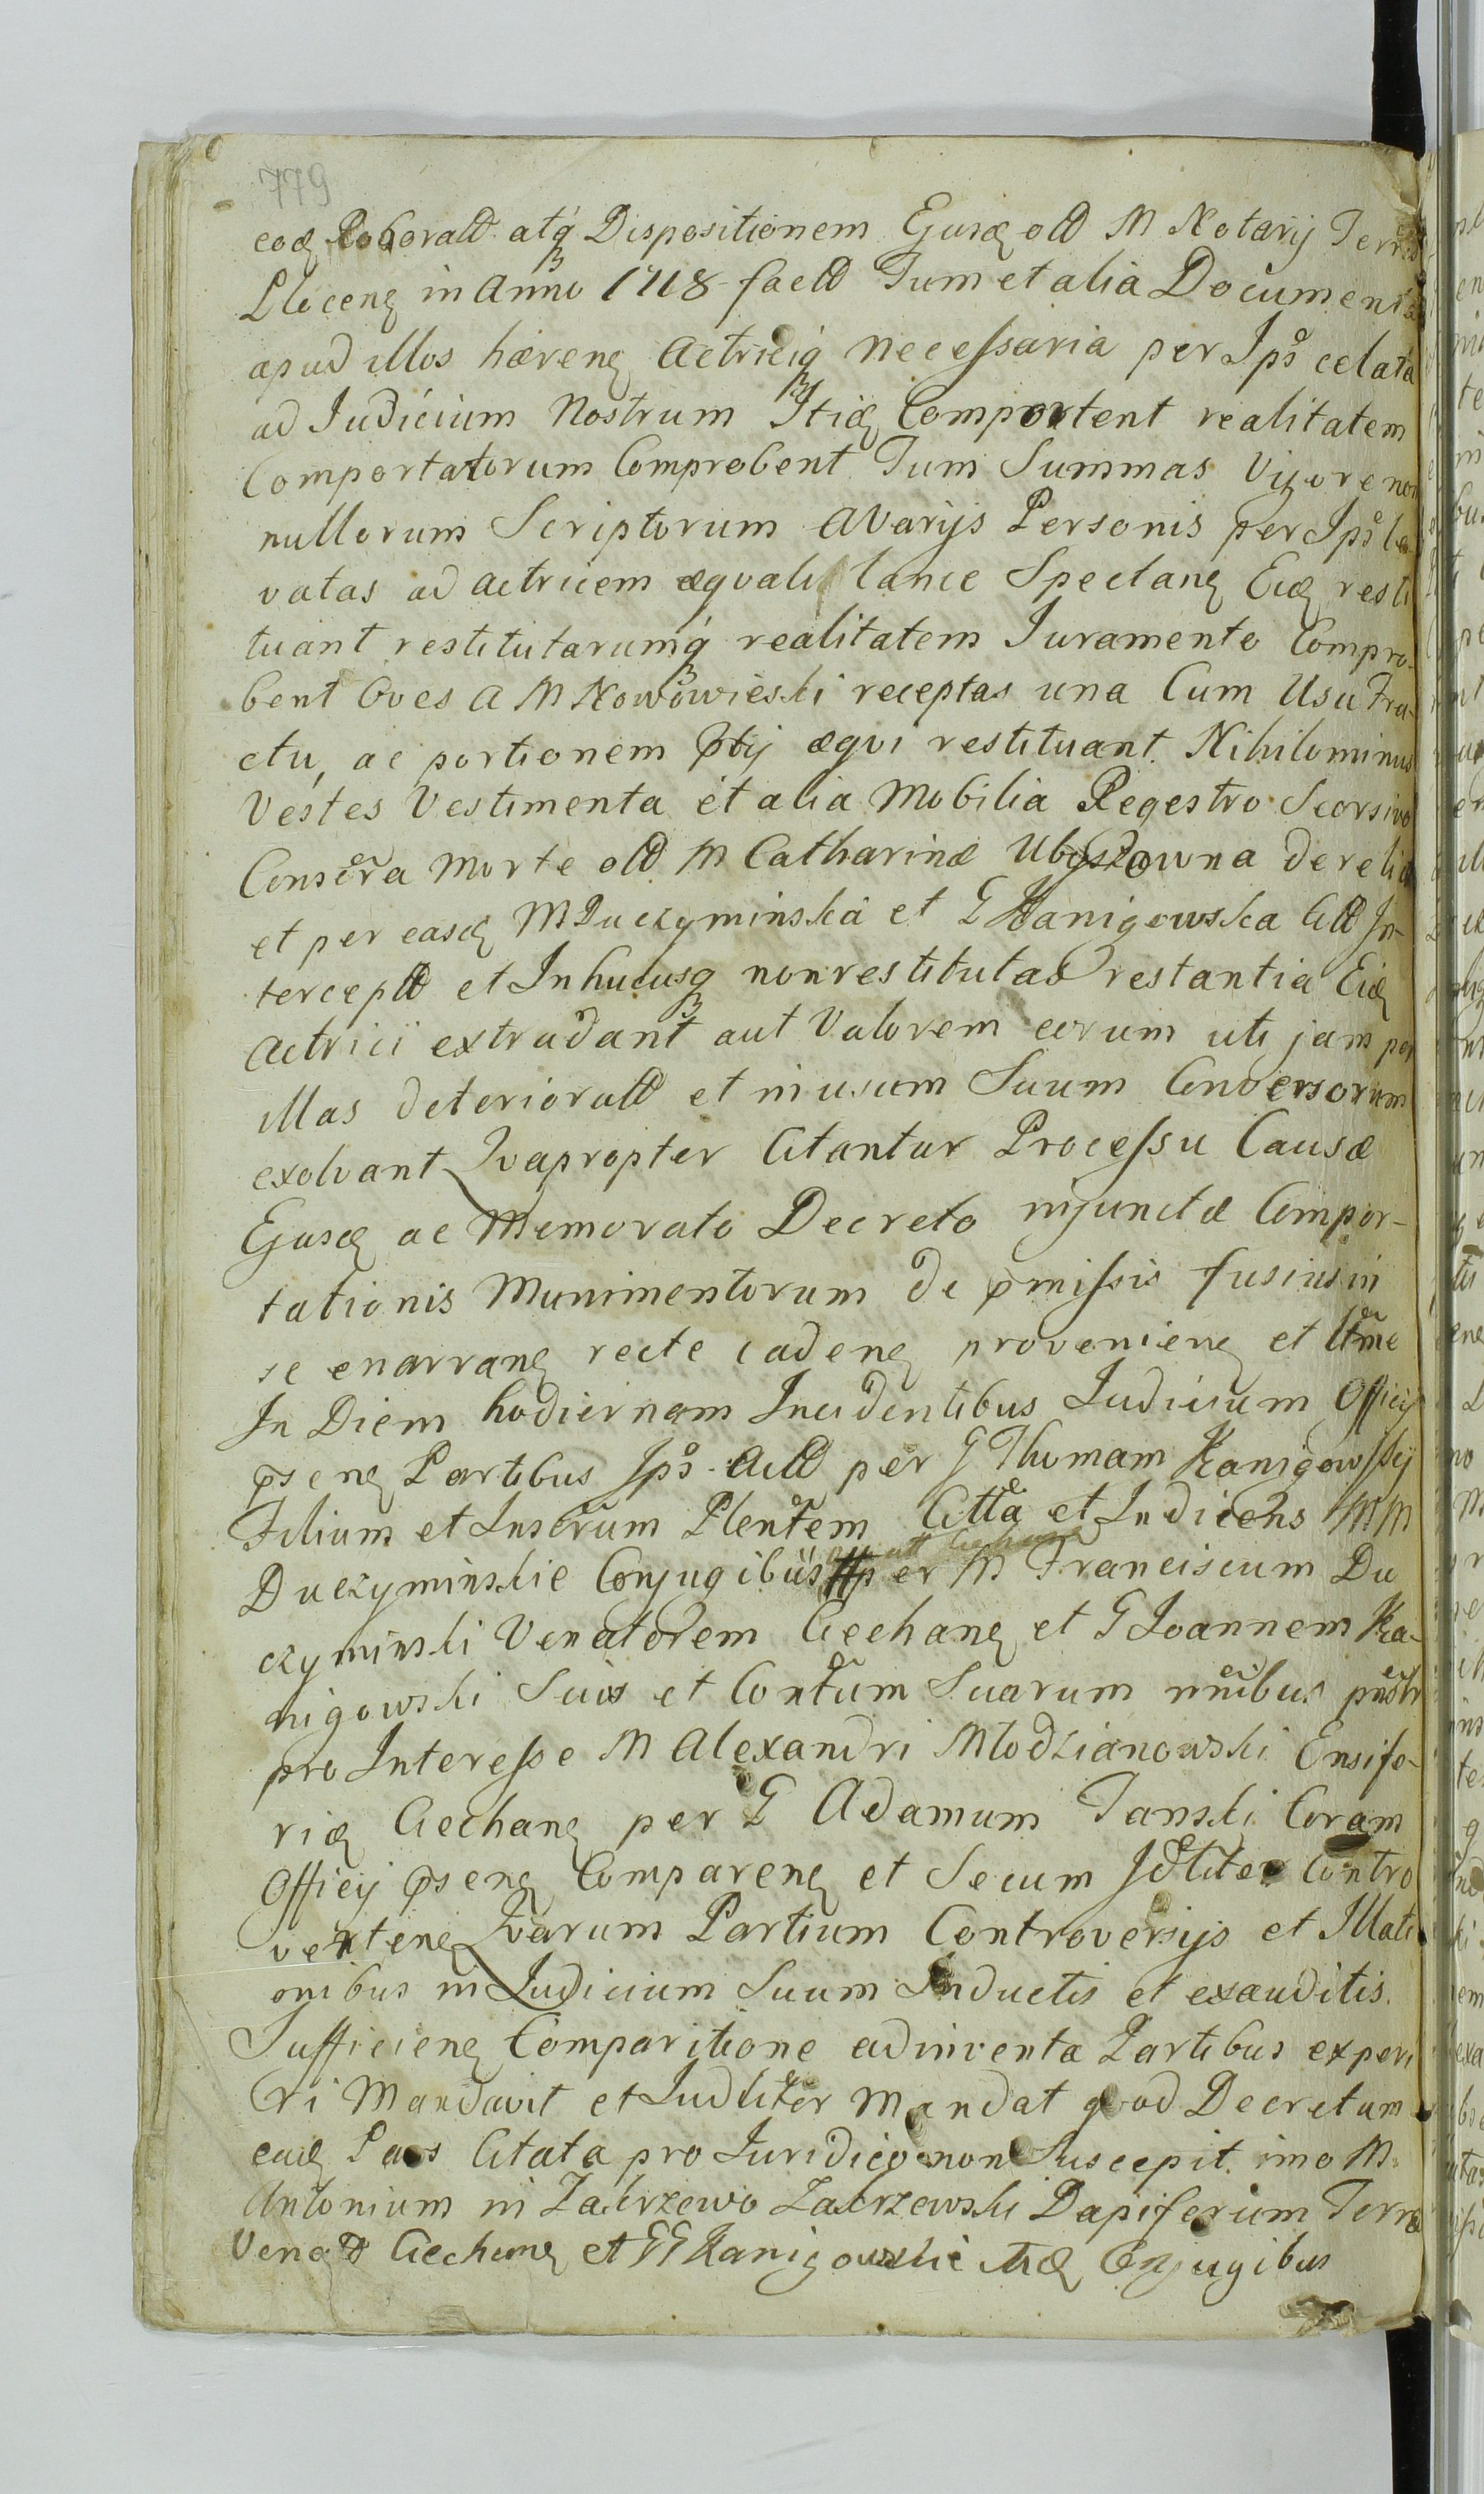 779
eoq Roboratt atq Dispositionem Ejusq old M Notarij Terr
Plocenq in Anno 1718 fact Tum et alia Documenta
apud illos hærenq Actriciq necessaria per Ips celata
ad Iudicium Nostrum Itiq Comportent realitatem
Comportatorum Comprobent Tum Summas Vigore non
nullorum Scriptorum a Varijs Personis per Ips le
vatas ad actricem æquali lance Spectanq Eiq resti
tuant restitutarumq realitatem Iuramento Compro-
bent Oves a M Nowowieski receptas una Cum Usu Fru-
ctu, ac portionem Ptij æqvi restituant. Nihilominus
Vestes Vestimenta et alia Mobilia Regestro Seorsivo
Conscra Morte old M Catharinæ Ubyszowna derelic
et per easq M Duczyminska et G Kanigowska Citt In-
tercept et Inhucusq nonrestitutas restantia Eiq
Actrici extradant aut Valorem eorum uti jam per
illas deterioratt et in usum Suum Conversorum
exolvant Qvapropter Citantur Processu Causæ
Ejusq ac Memorato Decreto injunctæ Compor-
tationis Munimentorum de pmissis fusius in
se enarranq recte cadenq provenienq et ltme
In Diem hodiernam Incidentibus Iudicium Officij
psenq Partibus Ips Actt per G Thomam Kanigowskij
Filium et Inscrum Plentem Citta et Indicens MM
Duczyminskie Conjugibus per M Franciscum Du
czyminski Venatorem Ciechanq et G Ioannem Ka-
nigowski Suis et Contum Suarum nnibus pnstr
pro Interesse M Alexandri Młodzianowski Ensife-
riq Ciechanq per G Adamum Tanski Coram
Officij psenq Comparenq et Secum Jdliter Contro
vertenq Qvarum Partium Controversijs et Illati
onibus in Iudicium Suum Inductis et exauditis.
Sufficienq Comparitione adinventa Partibus experi
ri Mandavit et Iudliter Mandat qvod Decretum
eaq Pars Citata pro Iuridico non Suscepit. imo M.
Antonium in Zakrzewo Zakrzewski Dapiferum Terræ
Ciechanq et GG Kanigowskie Conjugibus